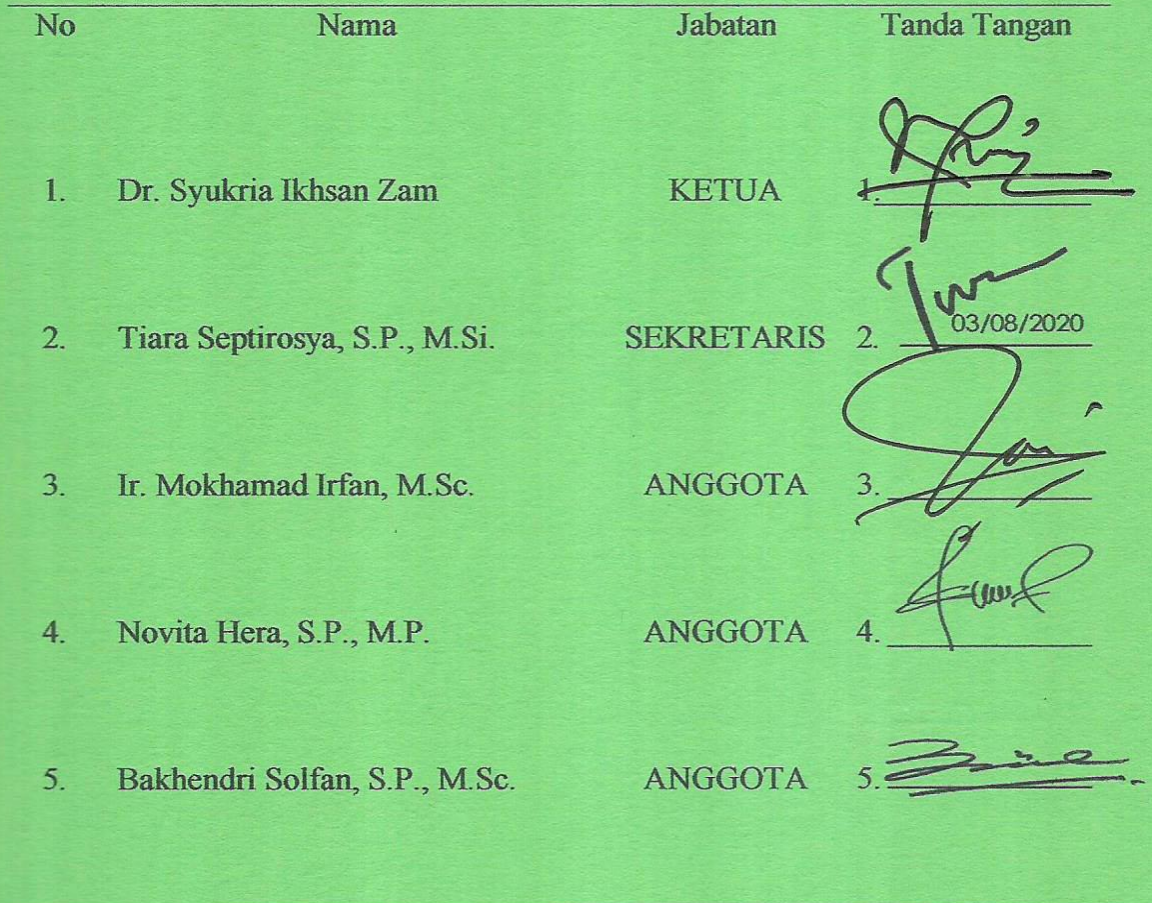 No Nama Jabatan Tanda Tangan
1. Dr. Syukria Ikhsan Zam KETUA 1.
03/08/2020
2. Tiara Septirosya, S.P., M.Si. SEKRETARIS 2.
3. Ir. Mokhamad Irfan, M.Sc. ANGGOTA 3.
4. Novita Hera, S.P., M.P. ANGGOTA 4.
5. Bakhendri Solfan, S.P., M.Sc. ANGGOTA 5.